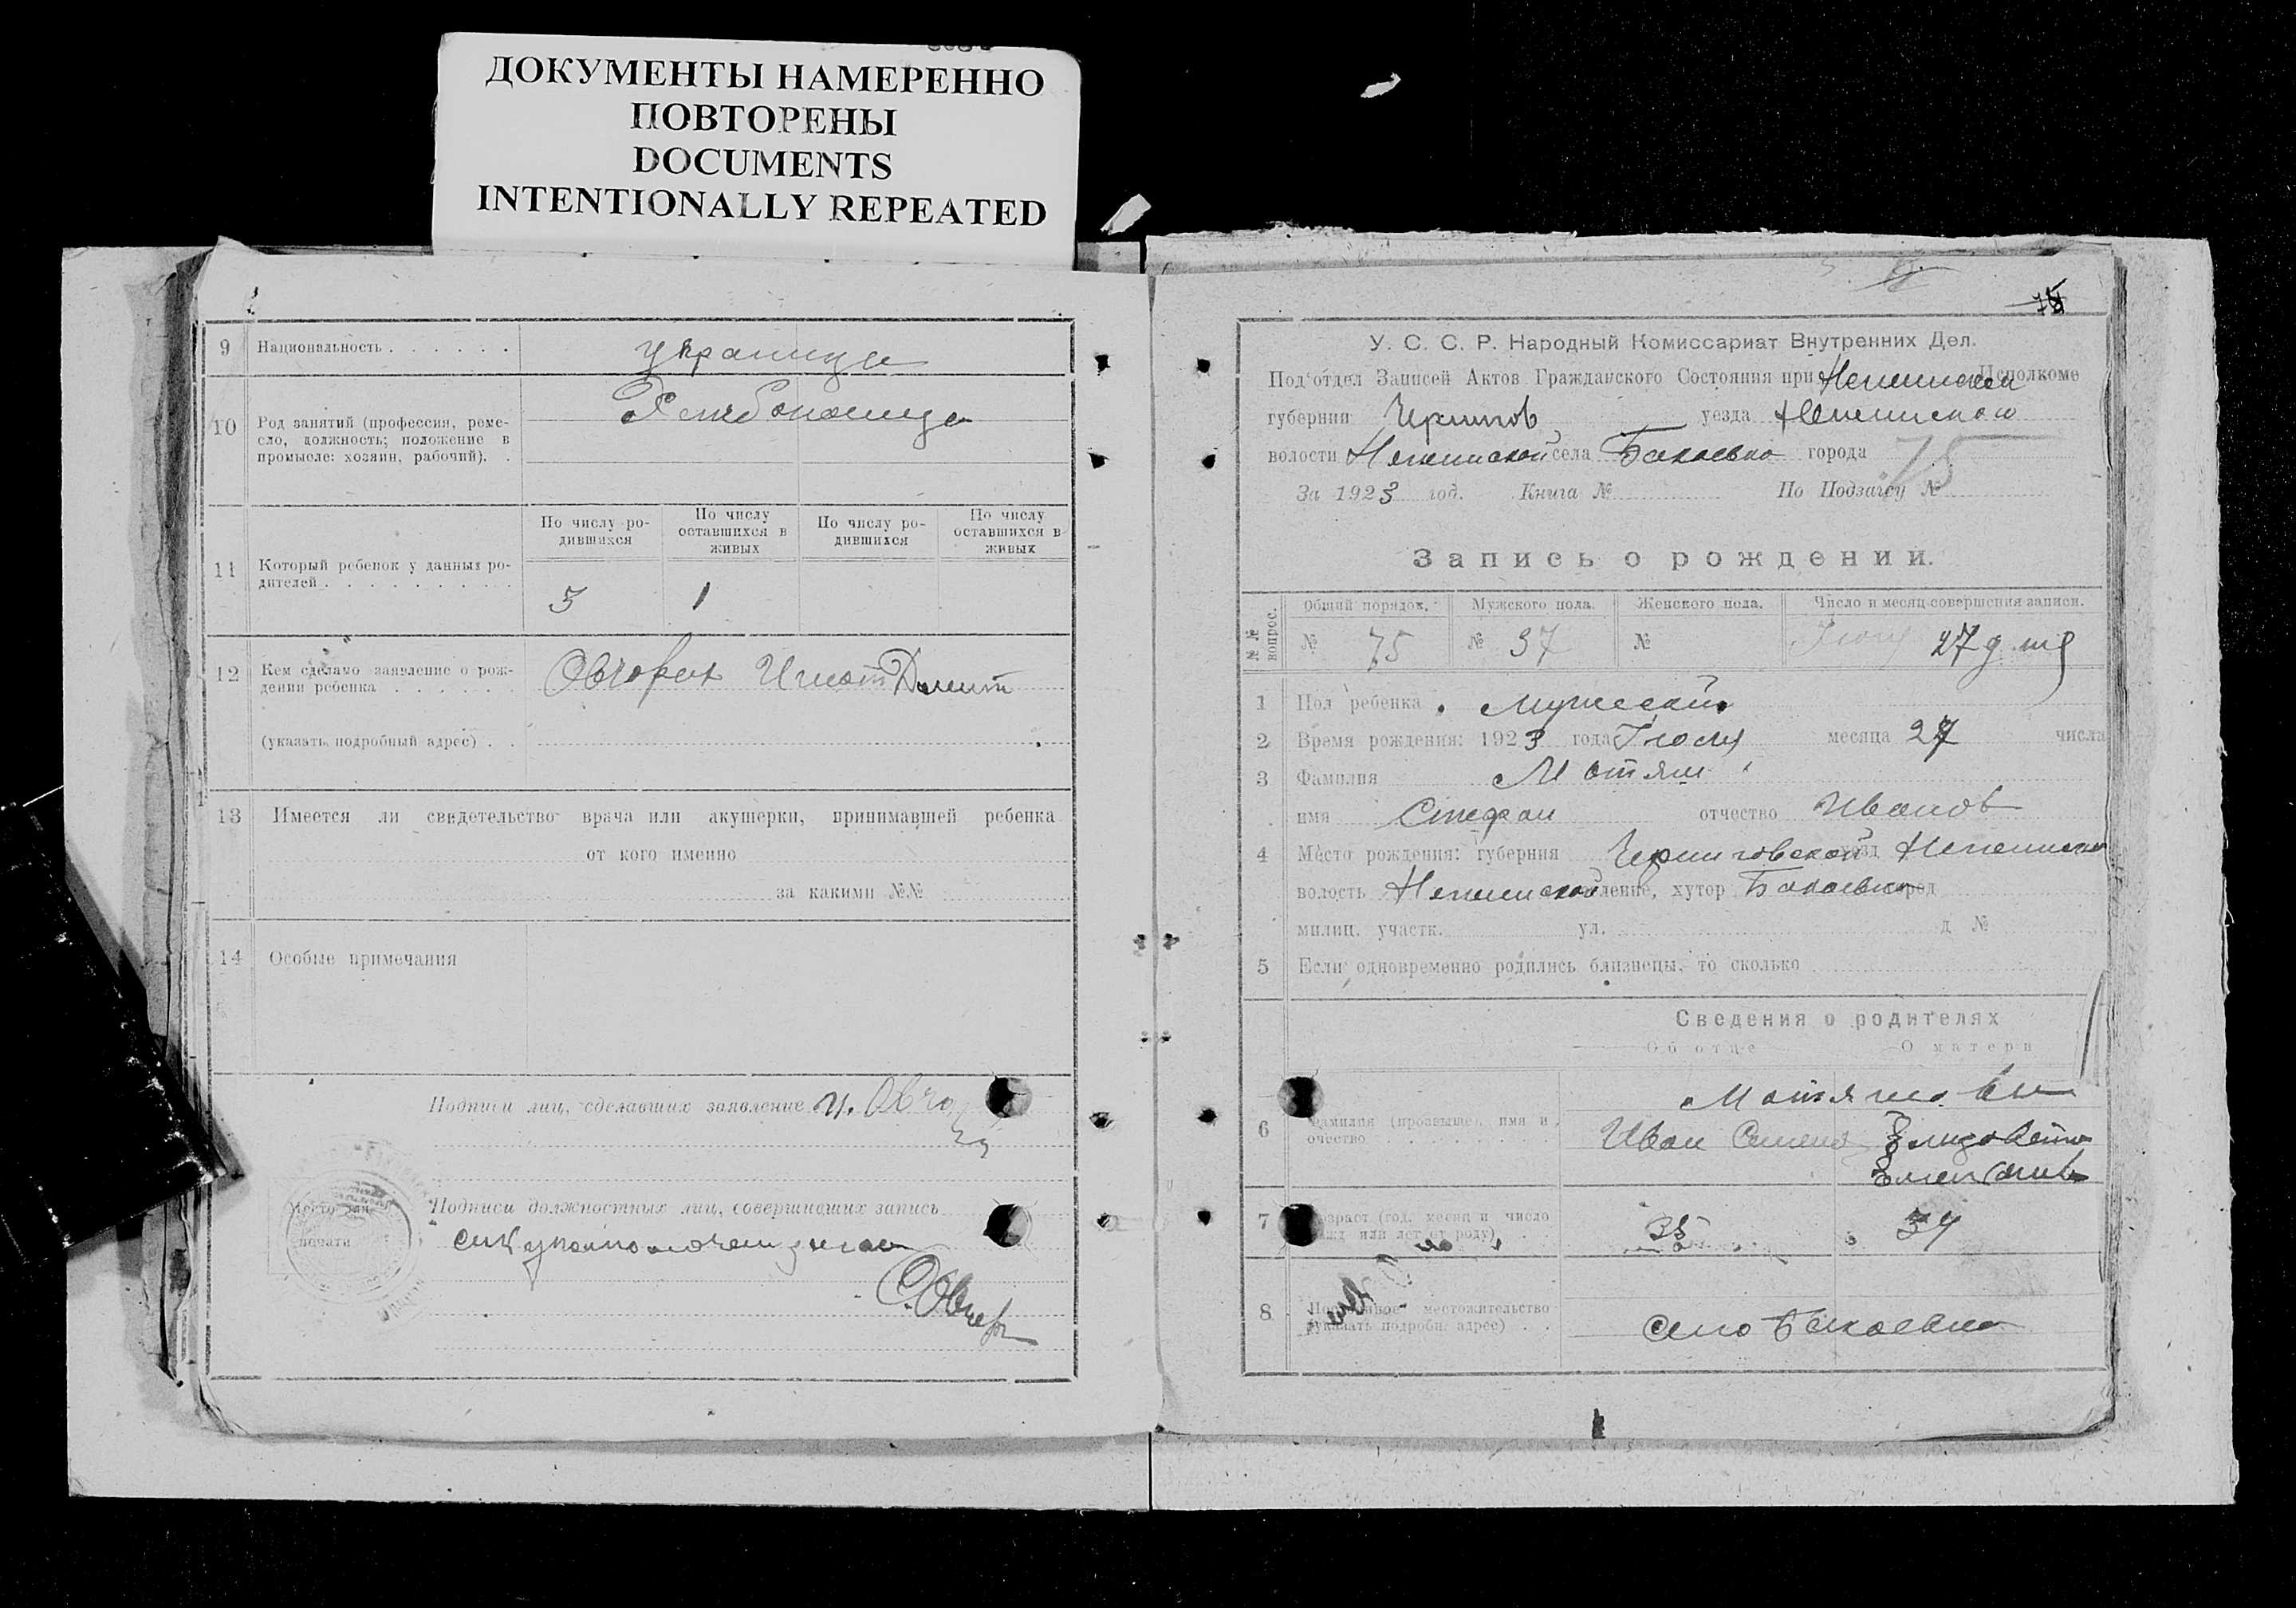 ДОКУМЕНТЫ НАМЕРЕННО
ПОВТОРЕНЫ
DOCUMENTS
INTENTIONALLY REPEATED
9 Национальность . . . . . . украинцы
10 Род занятий (профессия, реме-
сло, должность; положение в
промысле: хозяин, рабочий). .
11 Который ребенок у данных ро-
дителей . . . . . . . . .
По числу ро-
дившихся
По числу
оставшихся в
живых
По числу ро-
дившихся
По числу
оставшихся в
живых
5 1
12 Кем сделамо заявление о рож-
дении ребенка . . . . . . Игнат
(указать подробный адрес) . .
13 Имеется ли свидетельство врача или акушерки, принимавшей ребенка
от кого именно
за какими №№
14 Особые примечания
Подписи лиц, сделавших заявление
Место для
печати
Подписи должностных лиц, совершивших запись
75
У. С. С. Р. Народный Комиссариат Внутренних Дел.
Под'отдел Записей Актов Гражданского Состояния при Исполкоме
губернии Чернигов уезда Неженского
волости Неженской села Бакаевка города
За 1923 год. Книга № По Подзагсу № 75
Запись о рождении.
№№ вопрос.
Общий порядок. Мужского пола. Женского пола. Число и месяц совершения записи.
№ 75 № 37 №
1 Пол ребенка мужеский
2 Время рождения: 1923 года Июля месяца 27 числа
3 Фамилия Матяш
имя Стефан отчество Иванов
4 Место рождения: губерния Черниговской уезд
волость Неженской селение, хутор Бакаевка город
милиц. участк. ул. д №
5 Если одновременно родились близнецы, то сколько
Сведения о родителях
Об отце О матери
Матяшовы
6 Фамилия (прозвище), имя и
очество . . . . . . . . Иван Семенов Елизавета
7 Возраст (год, месяц и число
рожд или лет от роду) 34
8 Постоянное местожительство
(указать подробн. адрес) . . село Бакаевка